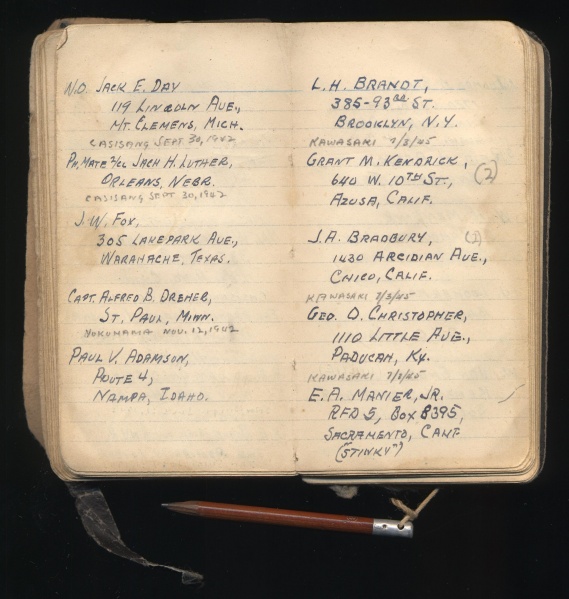 N.O. JACK E. DAY
119 LINCOLN AVE.,
MT. CLEMENS, MICH.
CASISANG SEPT 30, 1942
PH. MATE 2/CL JACK H. LUTHER,
ORLEANS, NEBR.
CASISANG SEPT 30, 1942
J. W. FOX,
305 LAKEPARK AVE.,
WAXAHACHE, TEXAS.
CAPT. ALFRED B. DREHER,
ST. PAUL, MINN.
YOKOHAMA NOV. 12, 1942
PAUL V. ADAMSON,
ROUTE 4,
NAMPA, IDAHO.
L. H. BRANDT,
385-93RD ST.
BROOKLYN, N.Y.
KAWASAKI 7/3/45
GRANT M. KENDRICK, (2)
640 W. 10TH ST.,
AZUSA, CALIF.
J. A. BRADBURY,
1430 ARCIDIAN AVE.,
CHICO, CALIF.
KAWASAKI 7/3/45
GEO. D. CHRISTOPHER,
1110 LITTLE AVE.,
PADUCAH, KY.
KAWASAKI 7/3/45
E. A. MANIER, JR.
RFD 5, BOX 8395,
SACRAMENTO, CALIF
("STINKY")